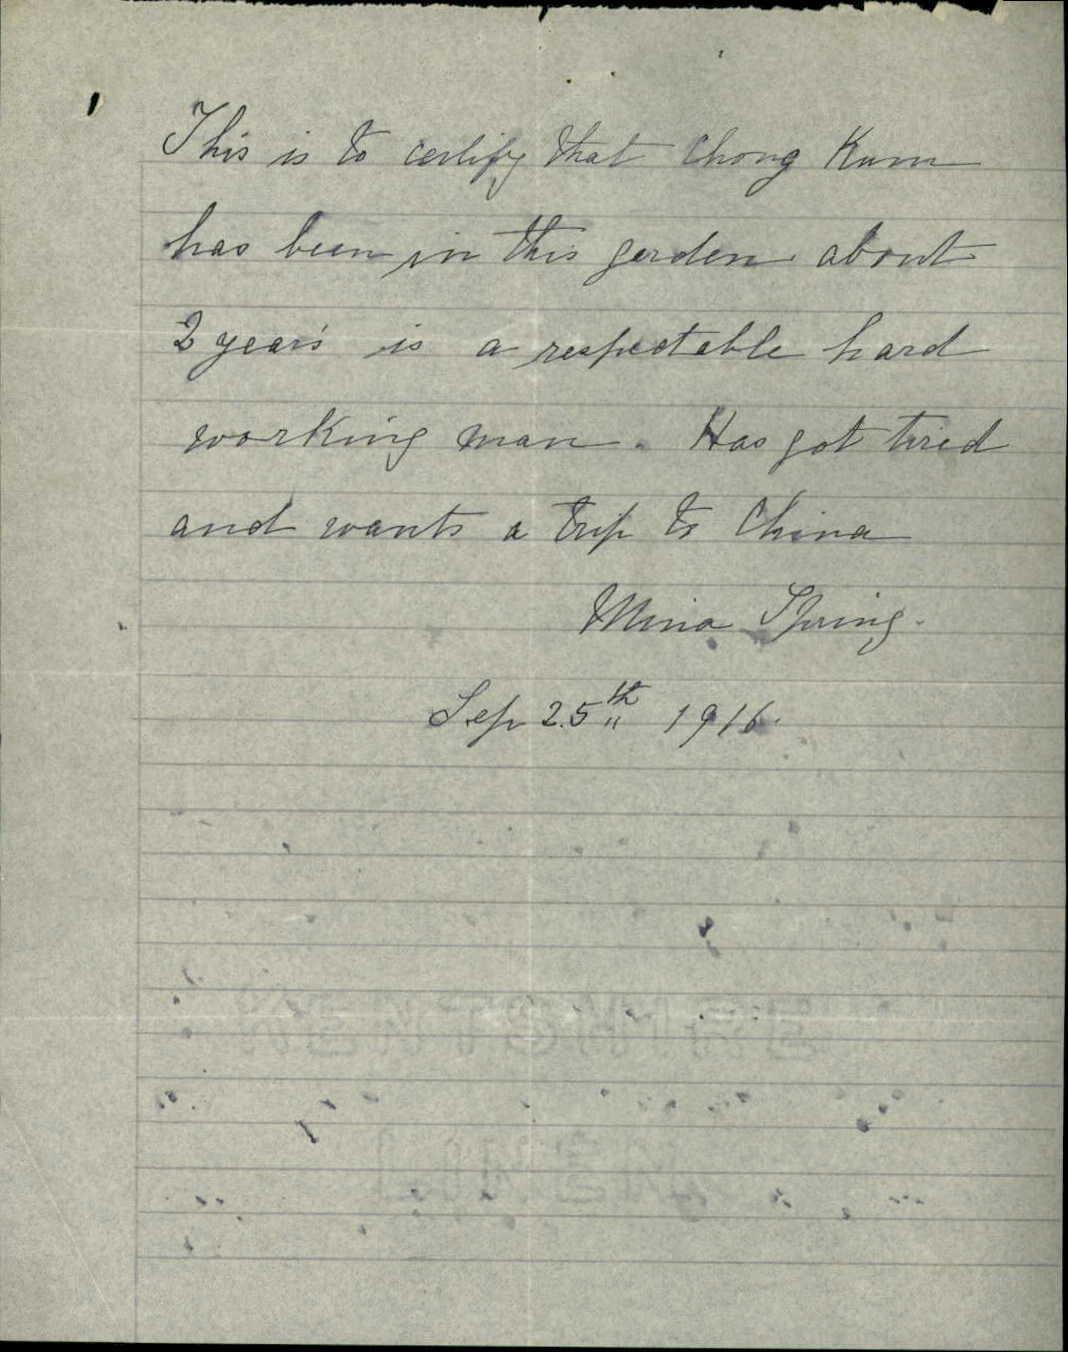 This is to certify that Chong Kum
has been in this garden about
2 year's is a respectable hard
working man. Has got tired
and wants a trip to China
Mina Spring.
Sep 25th 1916.